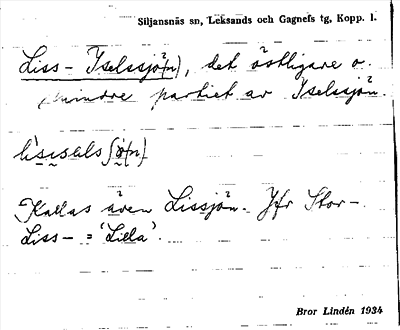 Siljansnäs sn, Leksands och Gagnefs tg, Kopp. l.
Liss- Yselssjö(n), det östligare o.
mindre partiet av Yselssjön.
Kallas även Lissjön. Jfr Stor-
Liss- = 'Lilla'.
Bror Lindén 1934